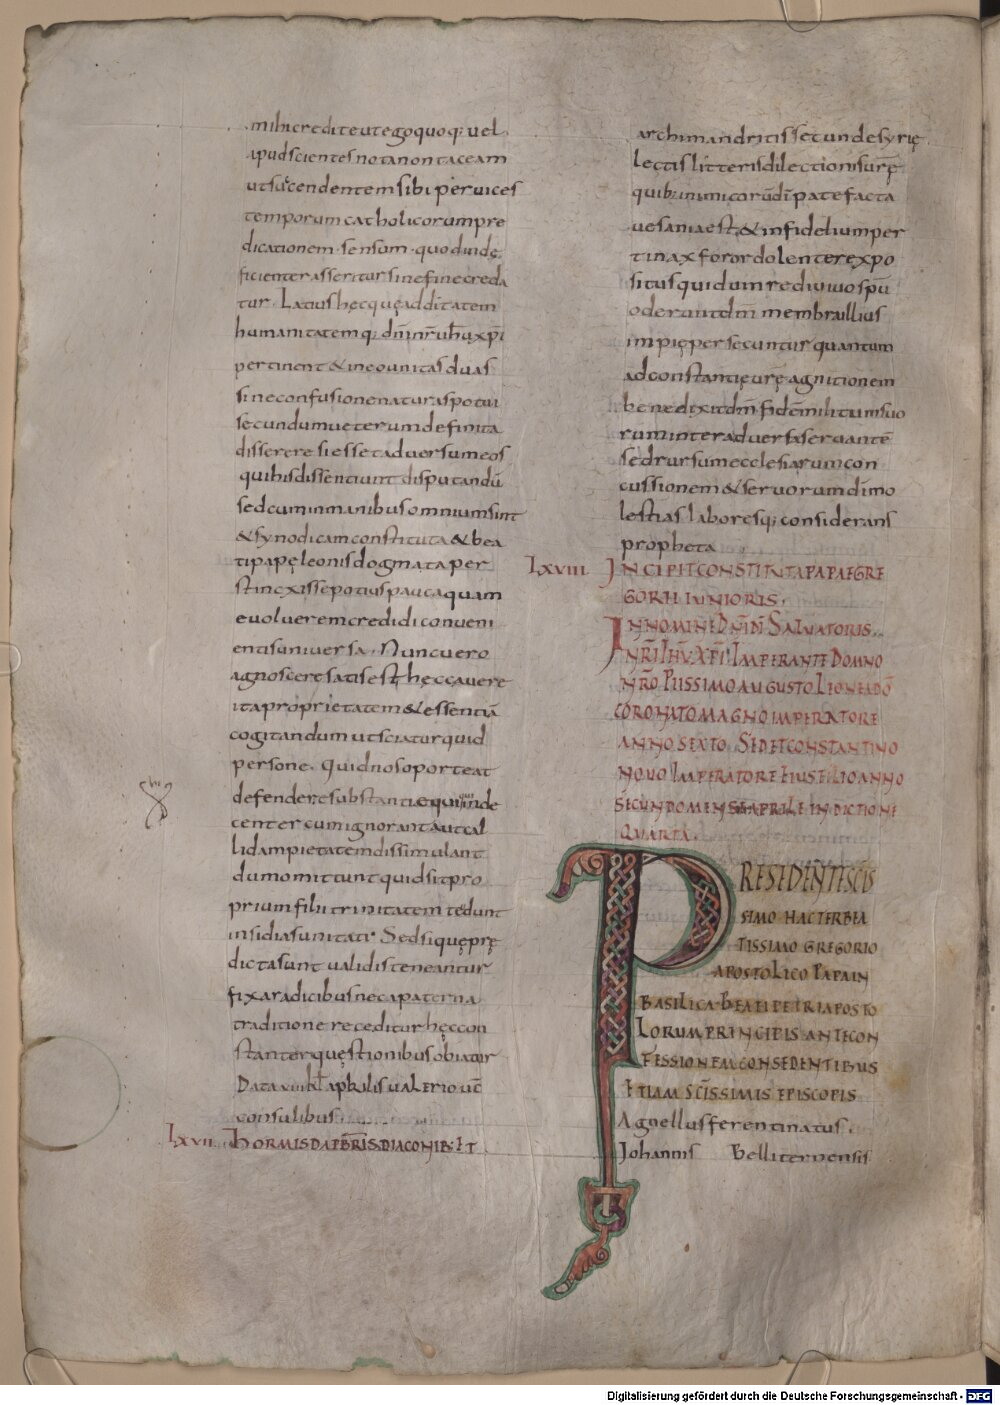 mihi credite ut ego quoq; uel
apud scientes nota non taceam
ut succendentem sibi per uices
temporum catholicorum pre
dicationem sensum quod uidę
ficienter asseritur sine fine creda
tur. Latius hęc quę ad ditatem
humanitatem q; dni nri ihu xpi
pertinent & in eo unitas duas
sine confusione naturas potui
secundum ueterum definita
disserere si esset aduersum eos
quibis dissentiunt disputandū
sed cum in manibus omnium sint
& synodicam constituta & bea
ti papę leonis dogmata per
stinxisse potius pauca quam
euoluerem credidi conueni
entis uniuersa. Nunc uero
agnoscere satis est hęc cauere
ita proprietatem & essentiā
cogitandum ut sciatur quid
persone. quid nos oporteat
defendere substantię qui inde
center cum ignorant aut cal
lida impietatem dissimulant
dum omittunt quid sit pro
prium filii trinitatem tedunt
insidias unitati Sed si quę prę
dicta sunt ualidis teneantur
fixa radicibus nec a paterna
traditione receditur hęc con
stanter quęstionibus obiatur
Data kl aprilis ualerio uc
consulibus
Lxvii hORMISDA PBRIS DIACONIB; ET
archimandritis secunde syrię
Lectis litteris dilectionis urę
quib; inimicorū dī patefacta
uesania est, & infidelium per
tinax foror dolenter expo
situs qui dum rediuiuo spū
oderunt dm membra illius
impię persecuntur quantum
ad constantię urę agnitionem
benedixi dm fidē militum suo
rum inter aduersa seruantē
sed rursum ecclesiarum con
cussionem & seruorum dī mo
lestias laboresq; considerans
propheta
Lxviii INCIPIT CONSTITUTA PAPAE GRE
GORII IUNIORIS.
IN NOMINE DNI DI SALUATORIS
NRI IHU XPI IMPERANTE DOMNO
NRO PIISSIMO AUGUSTO LIONE A DŌ
CORONATO MAGNO IMPERATORE
ANNO SEXTO SED ET CONSTANTINO
NOUO IMPERATORE EIUS FILIO ANNO
SECUNDO MENSE APRILE INDICTIONE
QUARTA.
PRESIDENTE SCIS
SIMO HAC TER BEA
TISSIMO GREGORIO
APOSTOLICO PAPA IN
BASILICA BEATI PETRI APOSTO
LORUM PRINCIPIS ANTE CON
FESSIONEM CONSEDENTIBUS
ETIAM SCISSIMIS EPISCOPIS
Agnellus ferentinatus.
Johannis Belliternensis
Digitalisierung gefördert durch die Deutsche Forschungsgemeinschaft - DFG